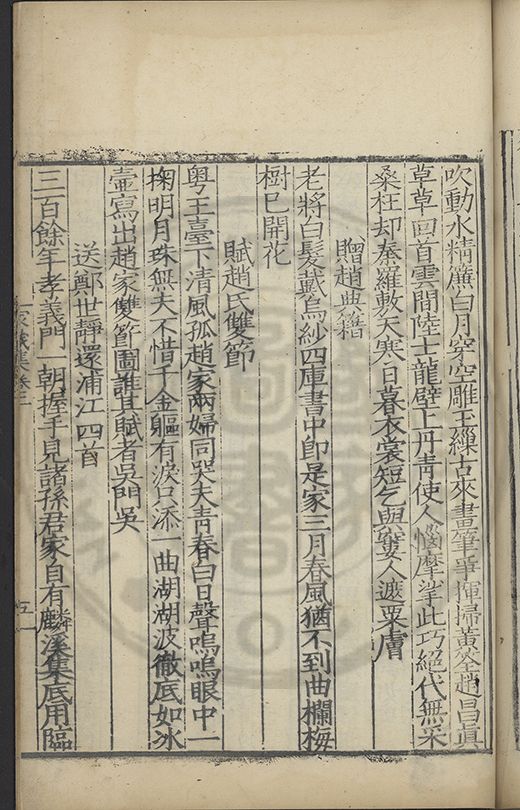 吹動水精簾白月穿空雕玉繩古來畫筆畢揮掃黃筌趙昌眞
草草回首雲間陸士龍壁上丹青使人惱摩挲此巧絕代無采
桑枉却秦羅敷天寒日暮衣裳短乞與鮫人遮粟膚
贈趙典籍
老將白髮戴烏紗四庫書中即是家三月春風猶不到曲欄梅
樹已開花
賦趙氏雙節
粤王臺下清風孤趙家兩婦同哭夫青春白日聲嗚嗚眼中一
掬明月珠無夫不惜千金軀有淚只添一曲湖湖波徹底如冰
壺寫出趙家雙節圖誰其賦者吳門吳
送鄭世靜還浦江四首
三百餘年孝義門一朝握手見諸孫君家自有麟溪集底用區
五